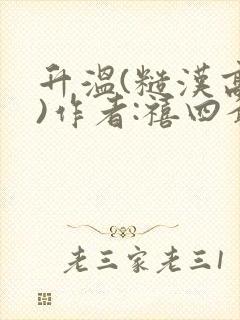 升温(糙汉高
)作者:禧四爷
老三家老三1